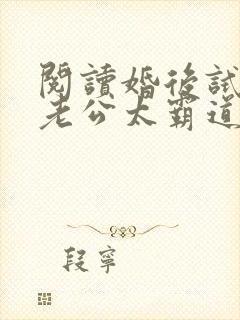 閱讀婚後試
老公太霸道
段寧